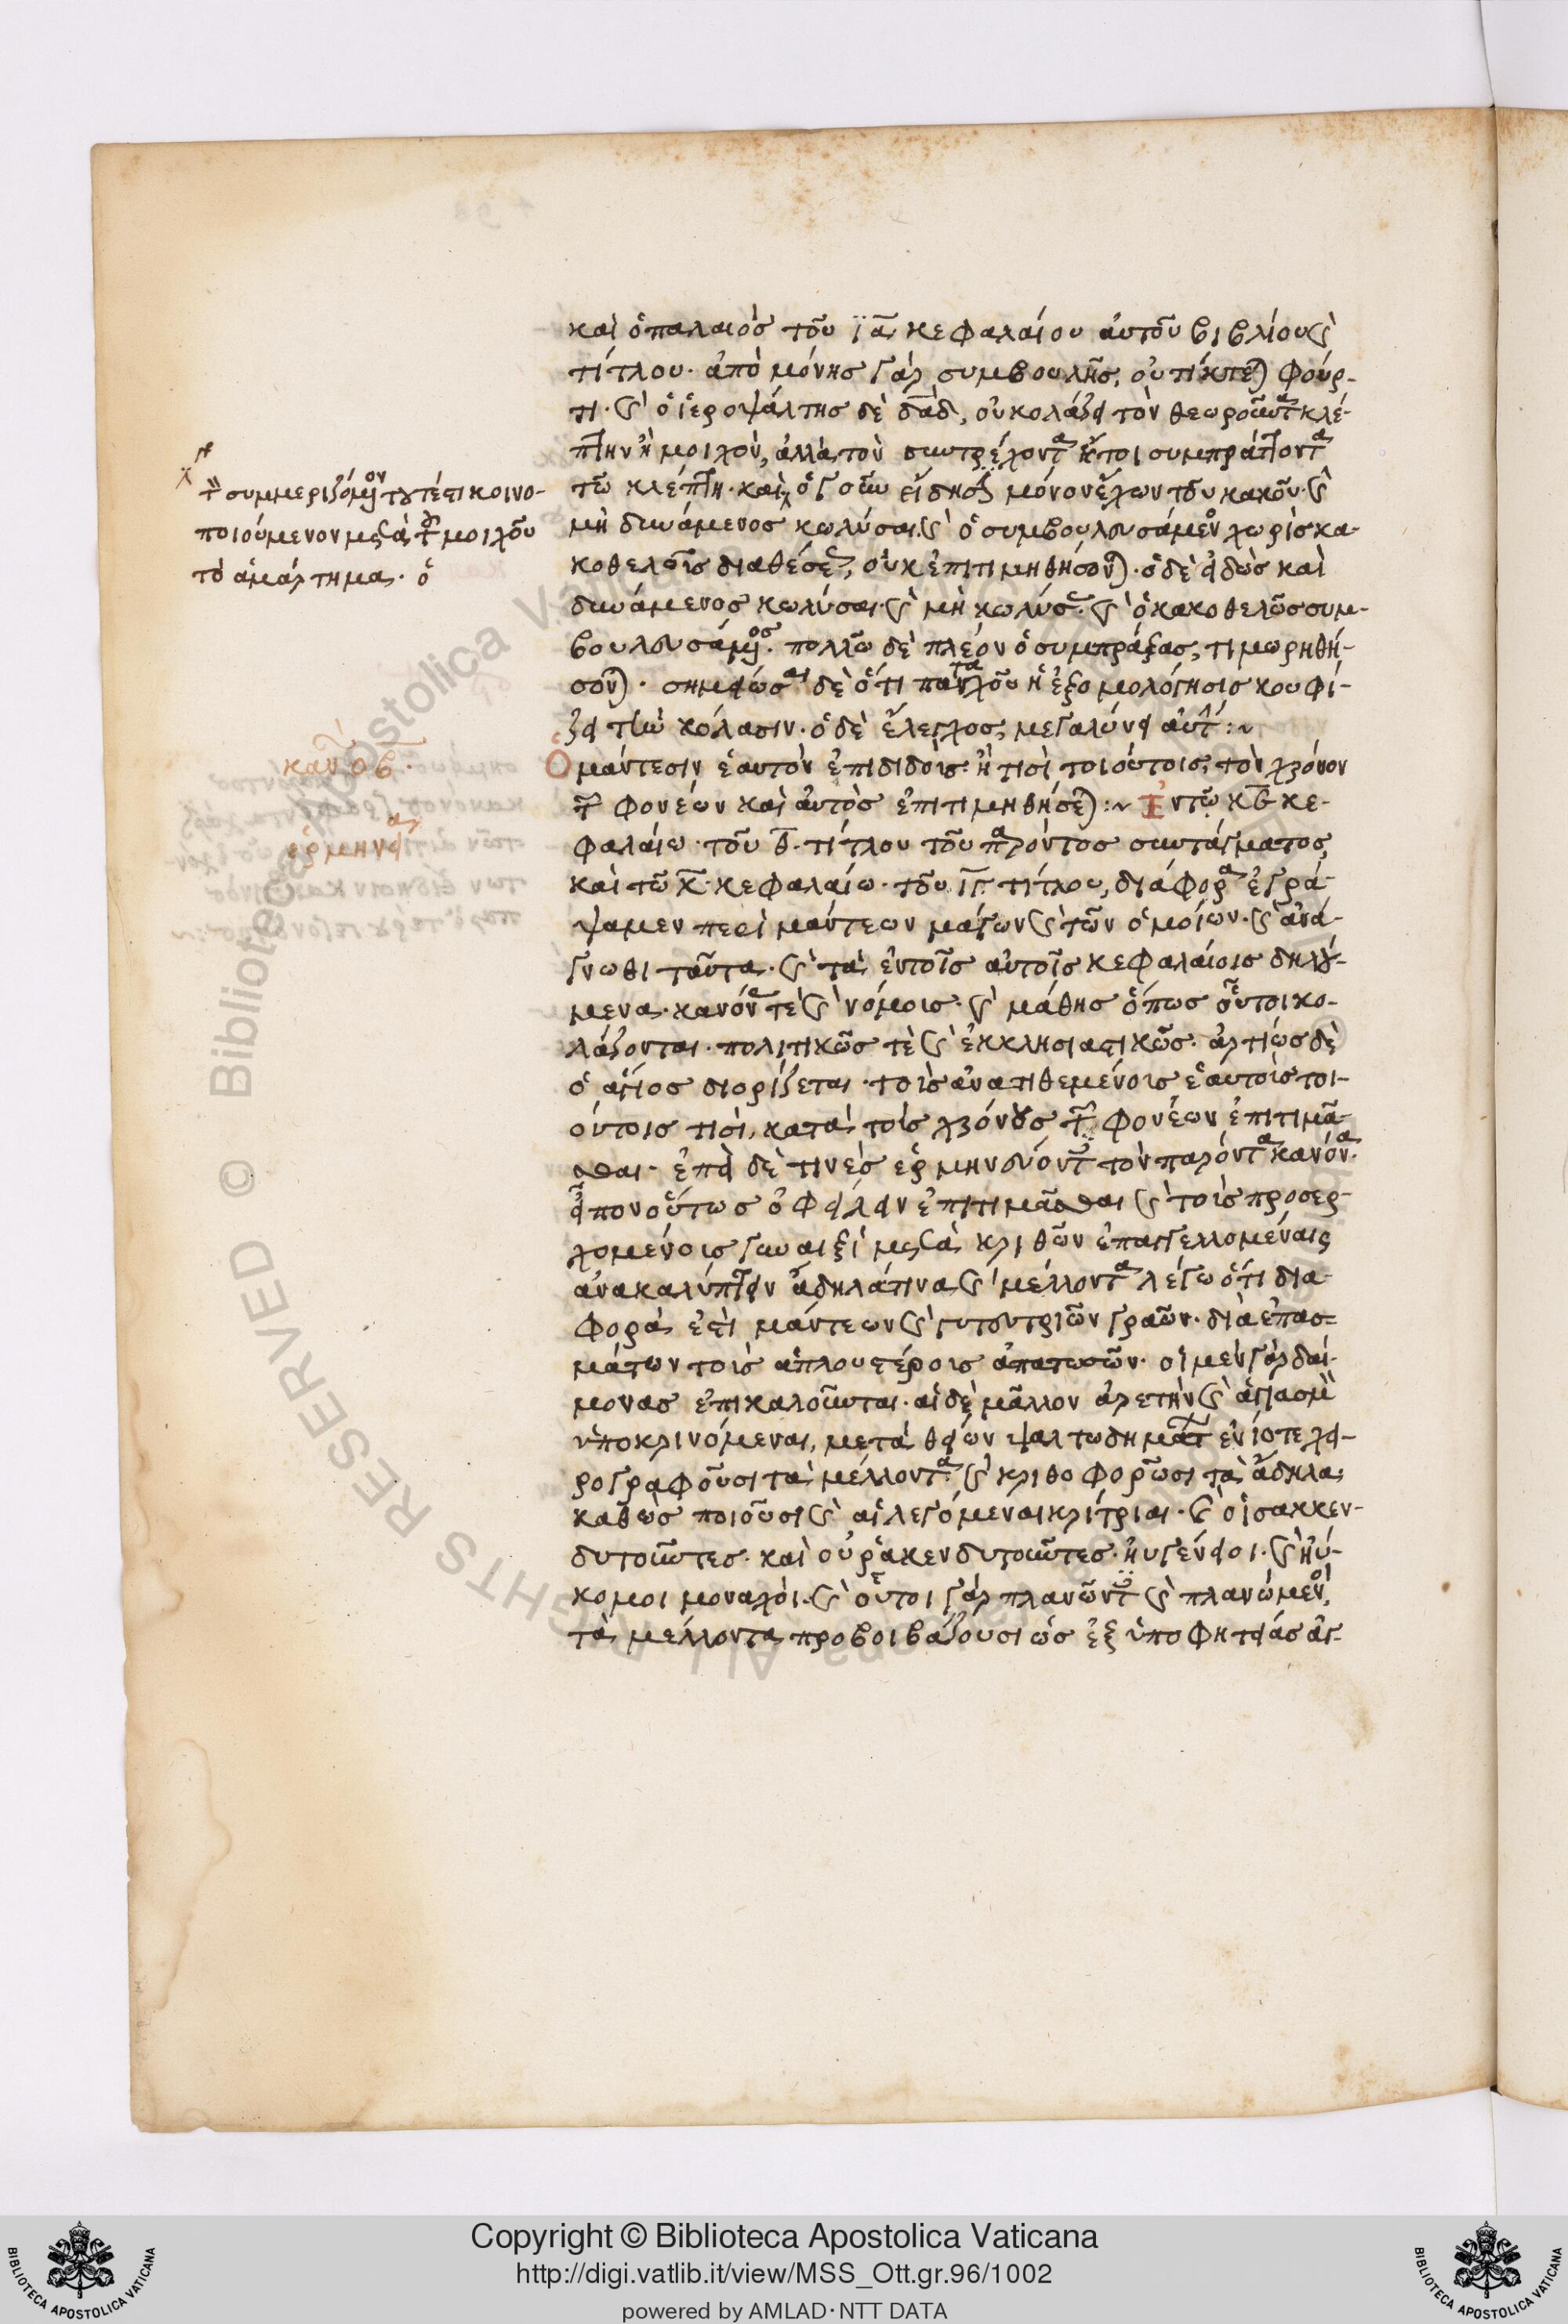 καὶ ὁ παλαιὸς τοῦ ια κεφαλαίου αὐτοῦ βιβλίου καὶ
τίτλου· ἀπὸ μόνης γὰρ συμβουλῆς, οὐ τίκτεται φούρ-
τι· καὶ ὁ ἱεροψάλτης δὲ δαδ, οὐ κολάζει τὸν θεωροῦντα κλέ-
πτην ἢ μοιχὸν, ἀλλὰ τὸν συντρέχοντα ἤτοι συμπράττοντα
τῶ κλέπτη· καὶ ὁ γοῦν εἴδησιν μόνον ἔχων τοῦ κακοῦ· καὶ
μὴ δυνάμενος κωλύσαι· καὶ ὁ συμβουλευσάμενος χωρὶς κα-
κοθελοῦς διαθέσεως, οὐκ ἐπιτιμηθήσονται· ὁ δὲ εἰδὼς καὶ
δυνάμενος κωλύσαι· καὶ μὴ κωλύσας· καὶ ὁ κακοθελῶς συμ-
βουλευσάμενος· πολλῶ δὲ πλέον ὁ συμπράξας, τιμωρηθή-
σονται· σημείωσαι δὲ ὅτι πανταχοῦ ἡ ἐξομολόγησις κουφί-
ζει τὴν κόλασιν· ὁ δὲ ἔλεγχος, μεγαλύνει αὐτήν :~
Ὁ μάντεσιν ἑαυτὸν ἐπιδιδοὺς ἤ τισι τοιούτοις, τὸν χρόνον
τῶν φονέων καὶ αὐτὸς ἐπιτιμηθήσεται :~ Ἐν τῶ κς κε-
φαλαίω· τοῦ θ· τίτλου τοῦ παρόντος συντάγματος,
καὶ τῶ κ· κεφαλαίω· τοῦ ιγ τίτλου, διάφορα ἐγρά-
ψαμεν περὶ μάντεων μάγων καὶ τῶν ὁμοίων· καὶ ἀνά-
γνωθι ταῦτα· καὶ τὰ ἐν τοῖς αὐτοῖς κεφαλαίοις δηλού-
μενα· κανόνας τὲ καὶ νόμοις· καὶ μάθης ὅπως οὗτοι κο-
λάζονται· πολιτικῶς τὲ καὶ ἐκκλησιαστικῶς· ἀρτίως δὲ
ὁ ἅγιος διορίζεται· τοὺς ἀνατιθεμένους ἑαυτοὺς τοι-
ούτοις τισὶ, κατὰ τοὺς χρόνους τῶν φονέων ἐπιτιμᾶ-
σθαι· ἐπεὶ δὲ τινὲς ἑρμηνεύοντες τὸν παρόντα κανόνα·
εἶπον οὕτως ὀφείλειν ἐπιτιμᾶσθαι καὶ τοὺς προσερ-
χομένους γυναιξὶ μετὰ κριθῶν ἐπαγγελλομέναις
ἀνακαλύπτειν ἄδηλά τινα καὶ μέλλοντα λέγω ὅτι δια-
φορὰ ἐστὶ μάντεων καὶ γυτευτριῶν γραῶν· διὰ ἐπασ-
μάτων τοὺς ἁπλουστέρους ἀπατωσῶν· οἱ μὲν γὰρ δαί-
μονας ἐπικαλοῦνται· αἱ δὲ μᾶλλον ἀρετὴν καὶ ἁγιασμὸν
ὑποκρινόμεναι, μετὰ θείων ψαλτωδημάτων ἐνίοτε χει-
ρογραφοῦσι τὰ μέλλοντα· καὶ κριθοφοροῦσι τὰ ἄδηλα,
καθὼς ποιοῦσι καὶ αἱ λεγόμεναι κρίτριαι· καὶ οἱ σακκεν-
δυτοῦντες· καὶ οὐ ῥακενδυτοῦντες· ἠυγένειοι· καὶ ἠΰ-
κομοι μοναχοί· καὶ οὗτοι γὰρ πλανῶντες καὶ πλανώμενοι,
τὰ μέλλοντα προβοιβάζουσι ὡς ἐξ ὑποφητείας ἁγ-
τὸν συμμεριζόμενον τουτέστι κοινο-
ποιούμενον μετὰ τοῦ μοιχοῦ
τὸ ἁμάρτημα· ὁ
κανὼν οβ·
ἑρμηνεία
Copyright © Biblioteca Apostolica Vaticana
http://digi.vatlib.it/view/MSS_Ott.gr.96/1002
powered by AMLAD·NTT DATA